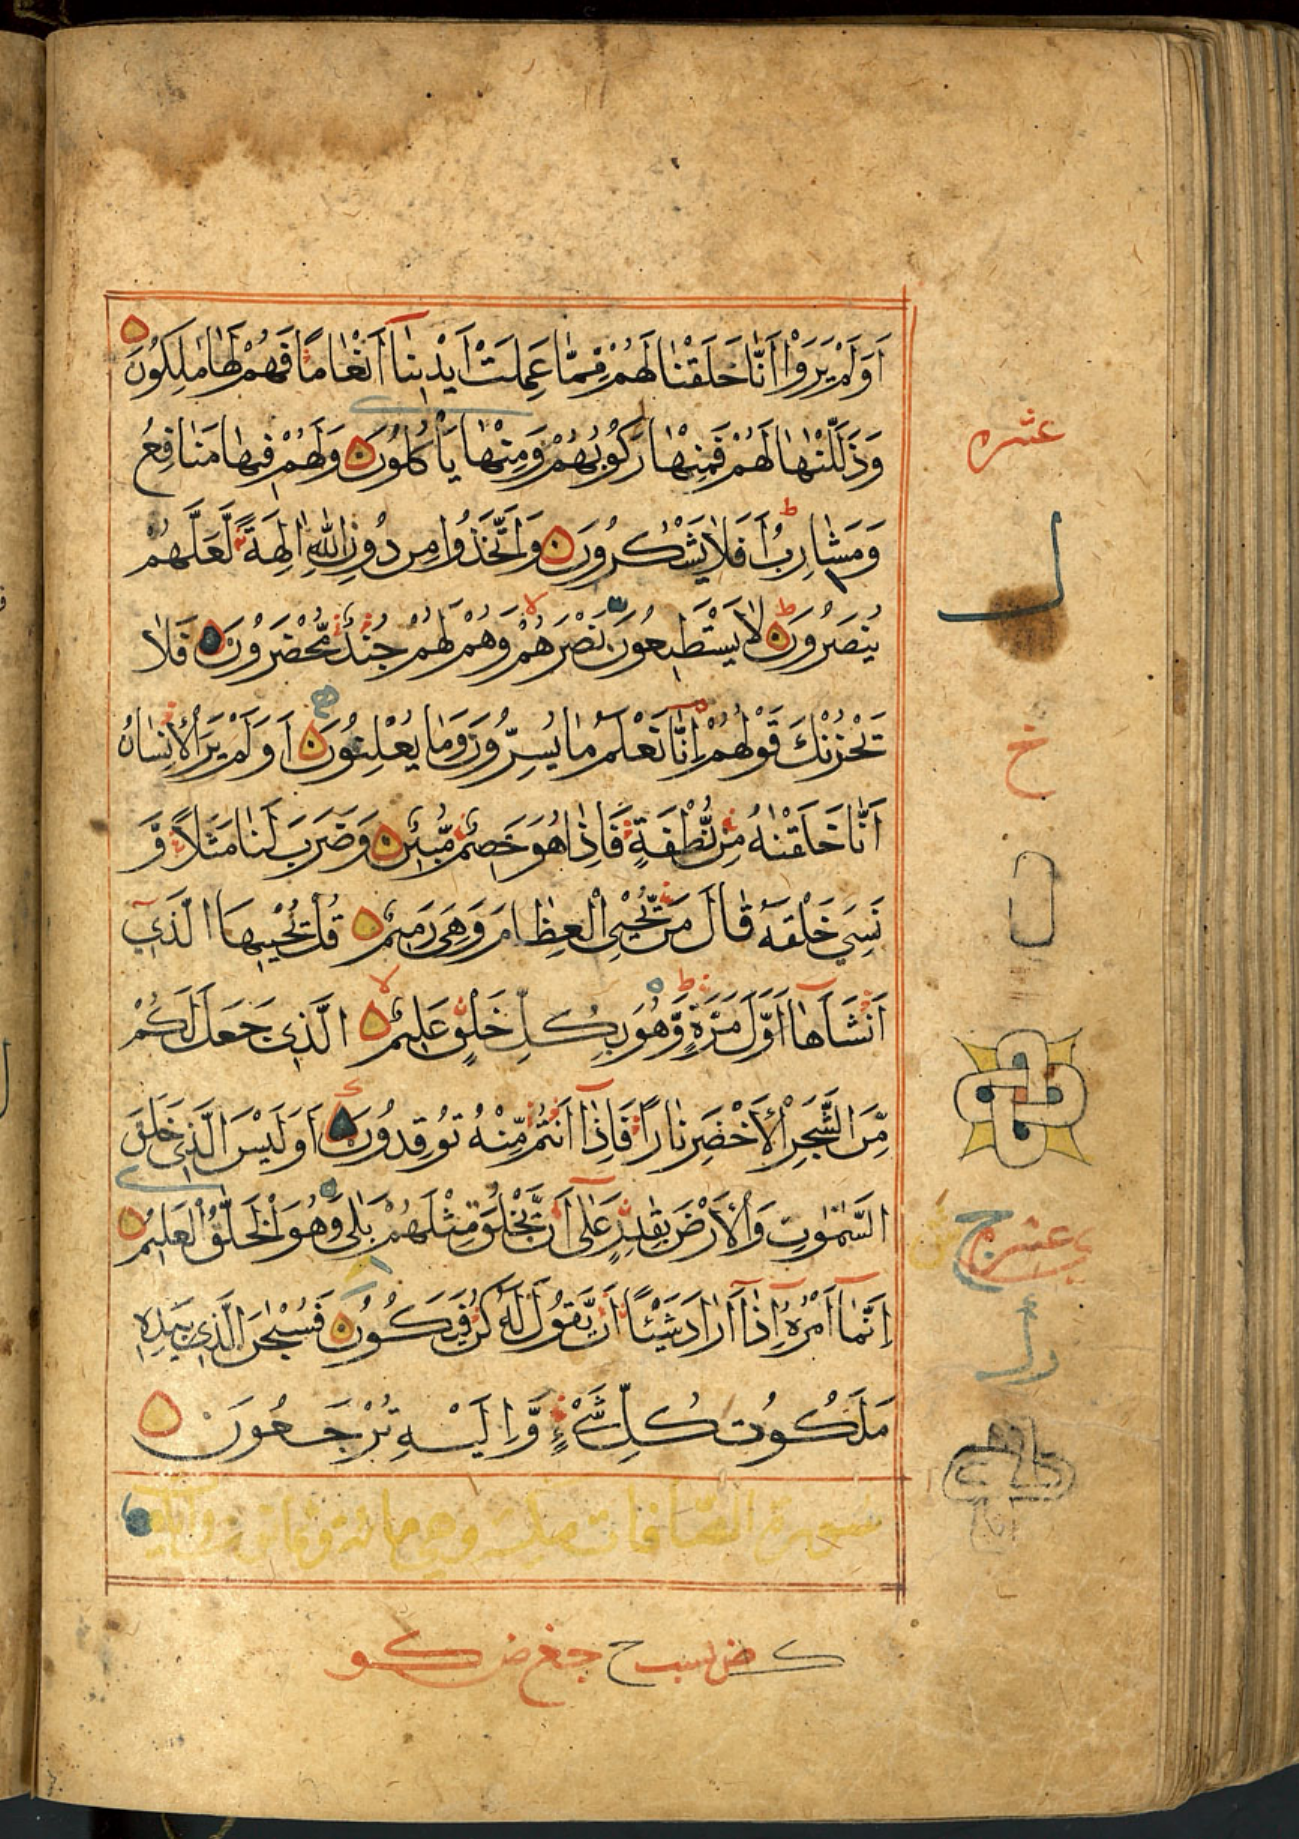 اَوَلَمْ يَرَوْا اَنَّا خَلَقْنَا لَهُمْ مِّمَّا عَمِلَتْ اَيْدِيْنَآ اَنْعَامًا فَهُمْ لَهَا مٰلِكُوْنَ
وَذَلَّلْنٰهَا لَهُمْ فَمِنْهَا رَكُوْبُهُمْ وَمِنْهَا يَاْكُلُوْنَ وَلَهُمْ فِيْهَا مَنَافِعُ
وَمَشَارِبُ اَفَلَا يَشْكُرُوْنَ وَاتَّخَذُوْا مِنْ دُوْنِ اللّٰهِ اٰلِهَةً لَّعَلَّهُمْ
يُنْصَرُوْنَ لَا يَسْتَطِيْعُوْنَ نَصْرَهُمْ وَهُمْ لَهُمْ جُنْدٌ مُّحْضَرُوْنَ فَلَا
يَحْزُنْكَ قَوْلُهُمْ اِنَّا نَعْلَمُ مَا يُسِرُّوْنَ وَمَا يُعْلِنُوْنَ اَوَلَمْ يَرَ الْاِنْسَانُ
اَنَّا خَلَقْنٰهُ مِنْ نُّطْفَةٍ فَاِذَا هُوَ خَصِيْمٌ مُّبِيْنٌ وَضَرَبَ لَنَا مَثَلًا وَّ
نَسِيَ خَلْقَهٗ قَالَ مَنْ يُّحْيِ الْعِظَامَ وَهِيَ رَمِيْمٌ قُلْ يُحْيِيْهَا الَّذِيْٓ
اَنْشَاَهَآ اَوَّلَ مَرَّةٍ وَّهُوَ بِكُلِّ خَلْقٍ عَلِيْمٌ الَّذِيْ جَعَلَ لَكُمْ
مِّنَ الشَّجَرِ الْاَخْضَرِ نَارًا فَاِذَآ اَنْتُمْ مِّنْهُ تُوْقِدُوْنَ اَوَلَيْسَ الَّذِيْ خَلَقَ
السَّمٰوٰتِ وَالْاَرْضَ بِقٰدِرٍ عَلٰٓى اَنْ يَّخْلُقَ مِثْلَهُمْ بَلٰى وَهُوَ الْخَلّٰقُ الْعَلِيْمُ
اِنَّمَآ اَمْرُهٗٓ اِذَآ اَرَادَ شَيْئًا اَنْ يَّقُوْلَ لَهٗ كُنْ فَيَكُوْنُ فَسُبْحٰنَ الَّذِيْ بِيَدِهٖ
مَلَكُوْتُ كُلِّ شَيْءٍ وَّاِلَيْهِ تُرْجَعُوْنَ
سورة الصافات مكية وهي مائة
عشره
خ
عشر